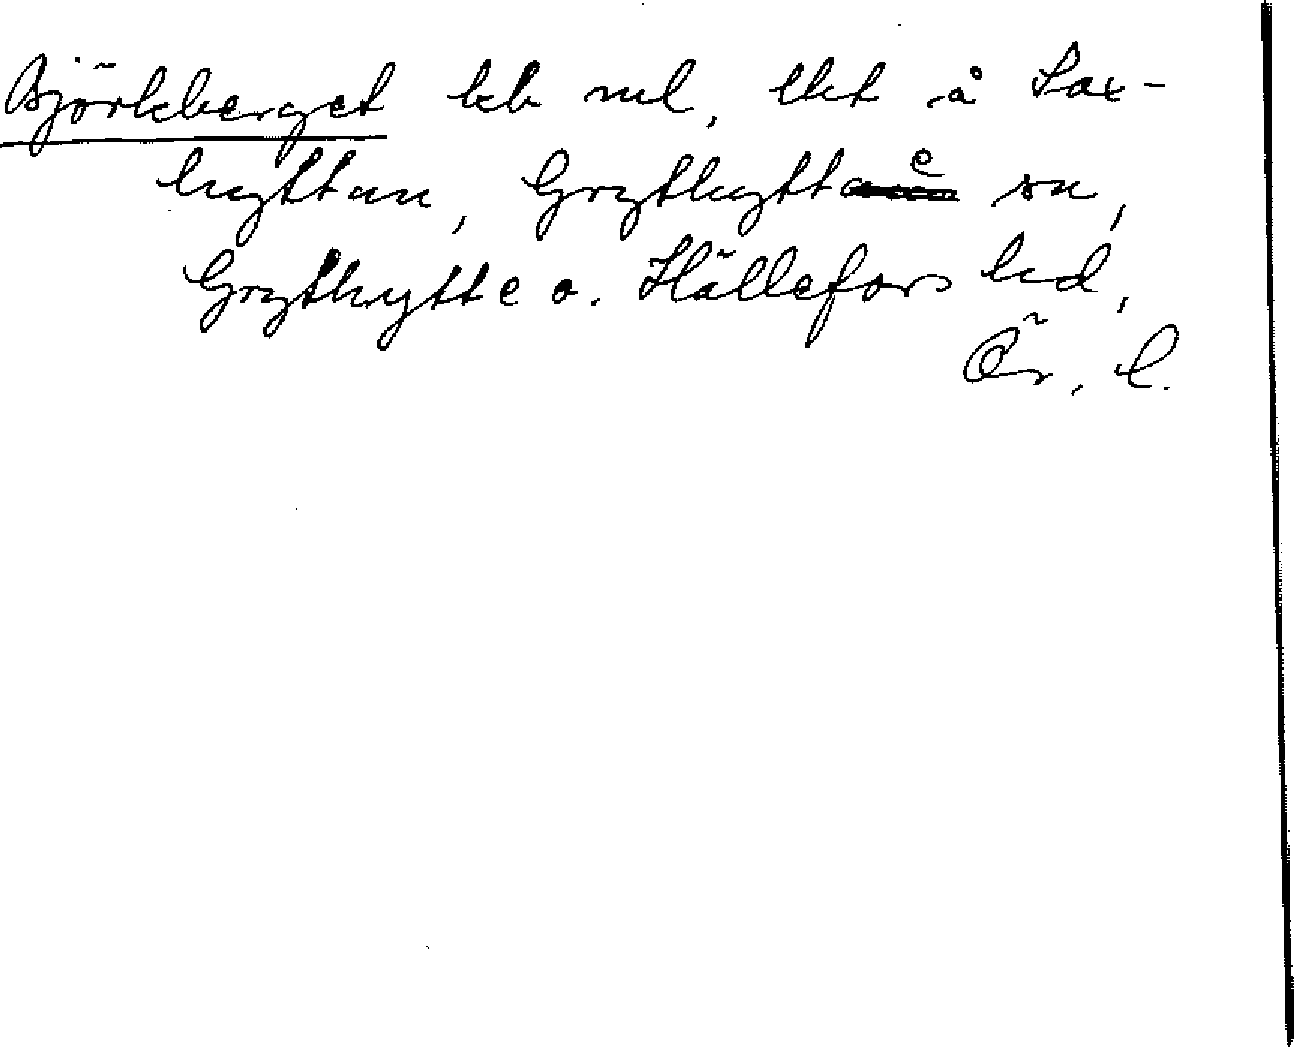 Björkberget bb nul, tkt å Sax-
hyttan, Grythytte sn,
Grythytte o. Hällefors hd,
Ör. l.